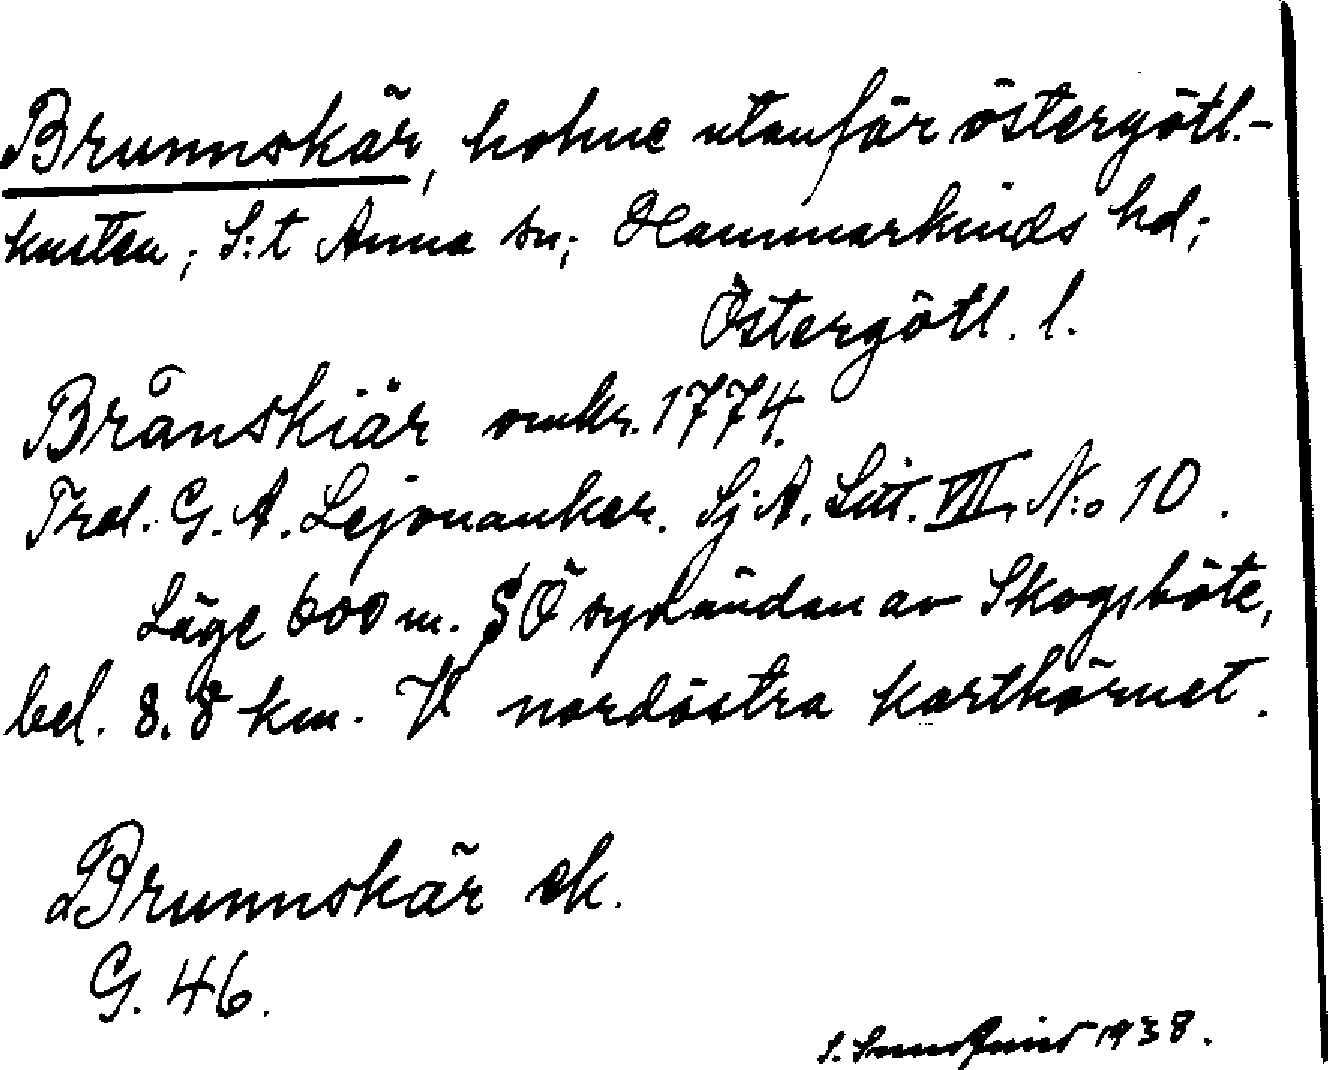 Brunnskär, holme utanför östergötl.-
kusten; S:t Anna sn; Hammarkinds hd;
Östergötl. l.
Brånskiär omkr. 1774.
Trol. G. A. Lejonanker. Sj A. Litt. VIII. N:o 10.
Läge 600 m. SÖ sydändan av Skogsböte,
bel. 8.8 km. V nordöstra karthörnet.
Brunnskär ek.
G. 46.
S. 1938.